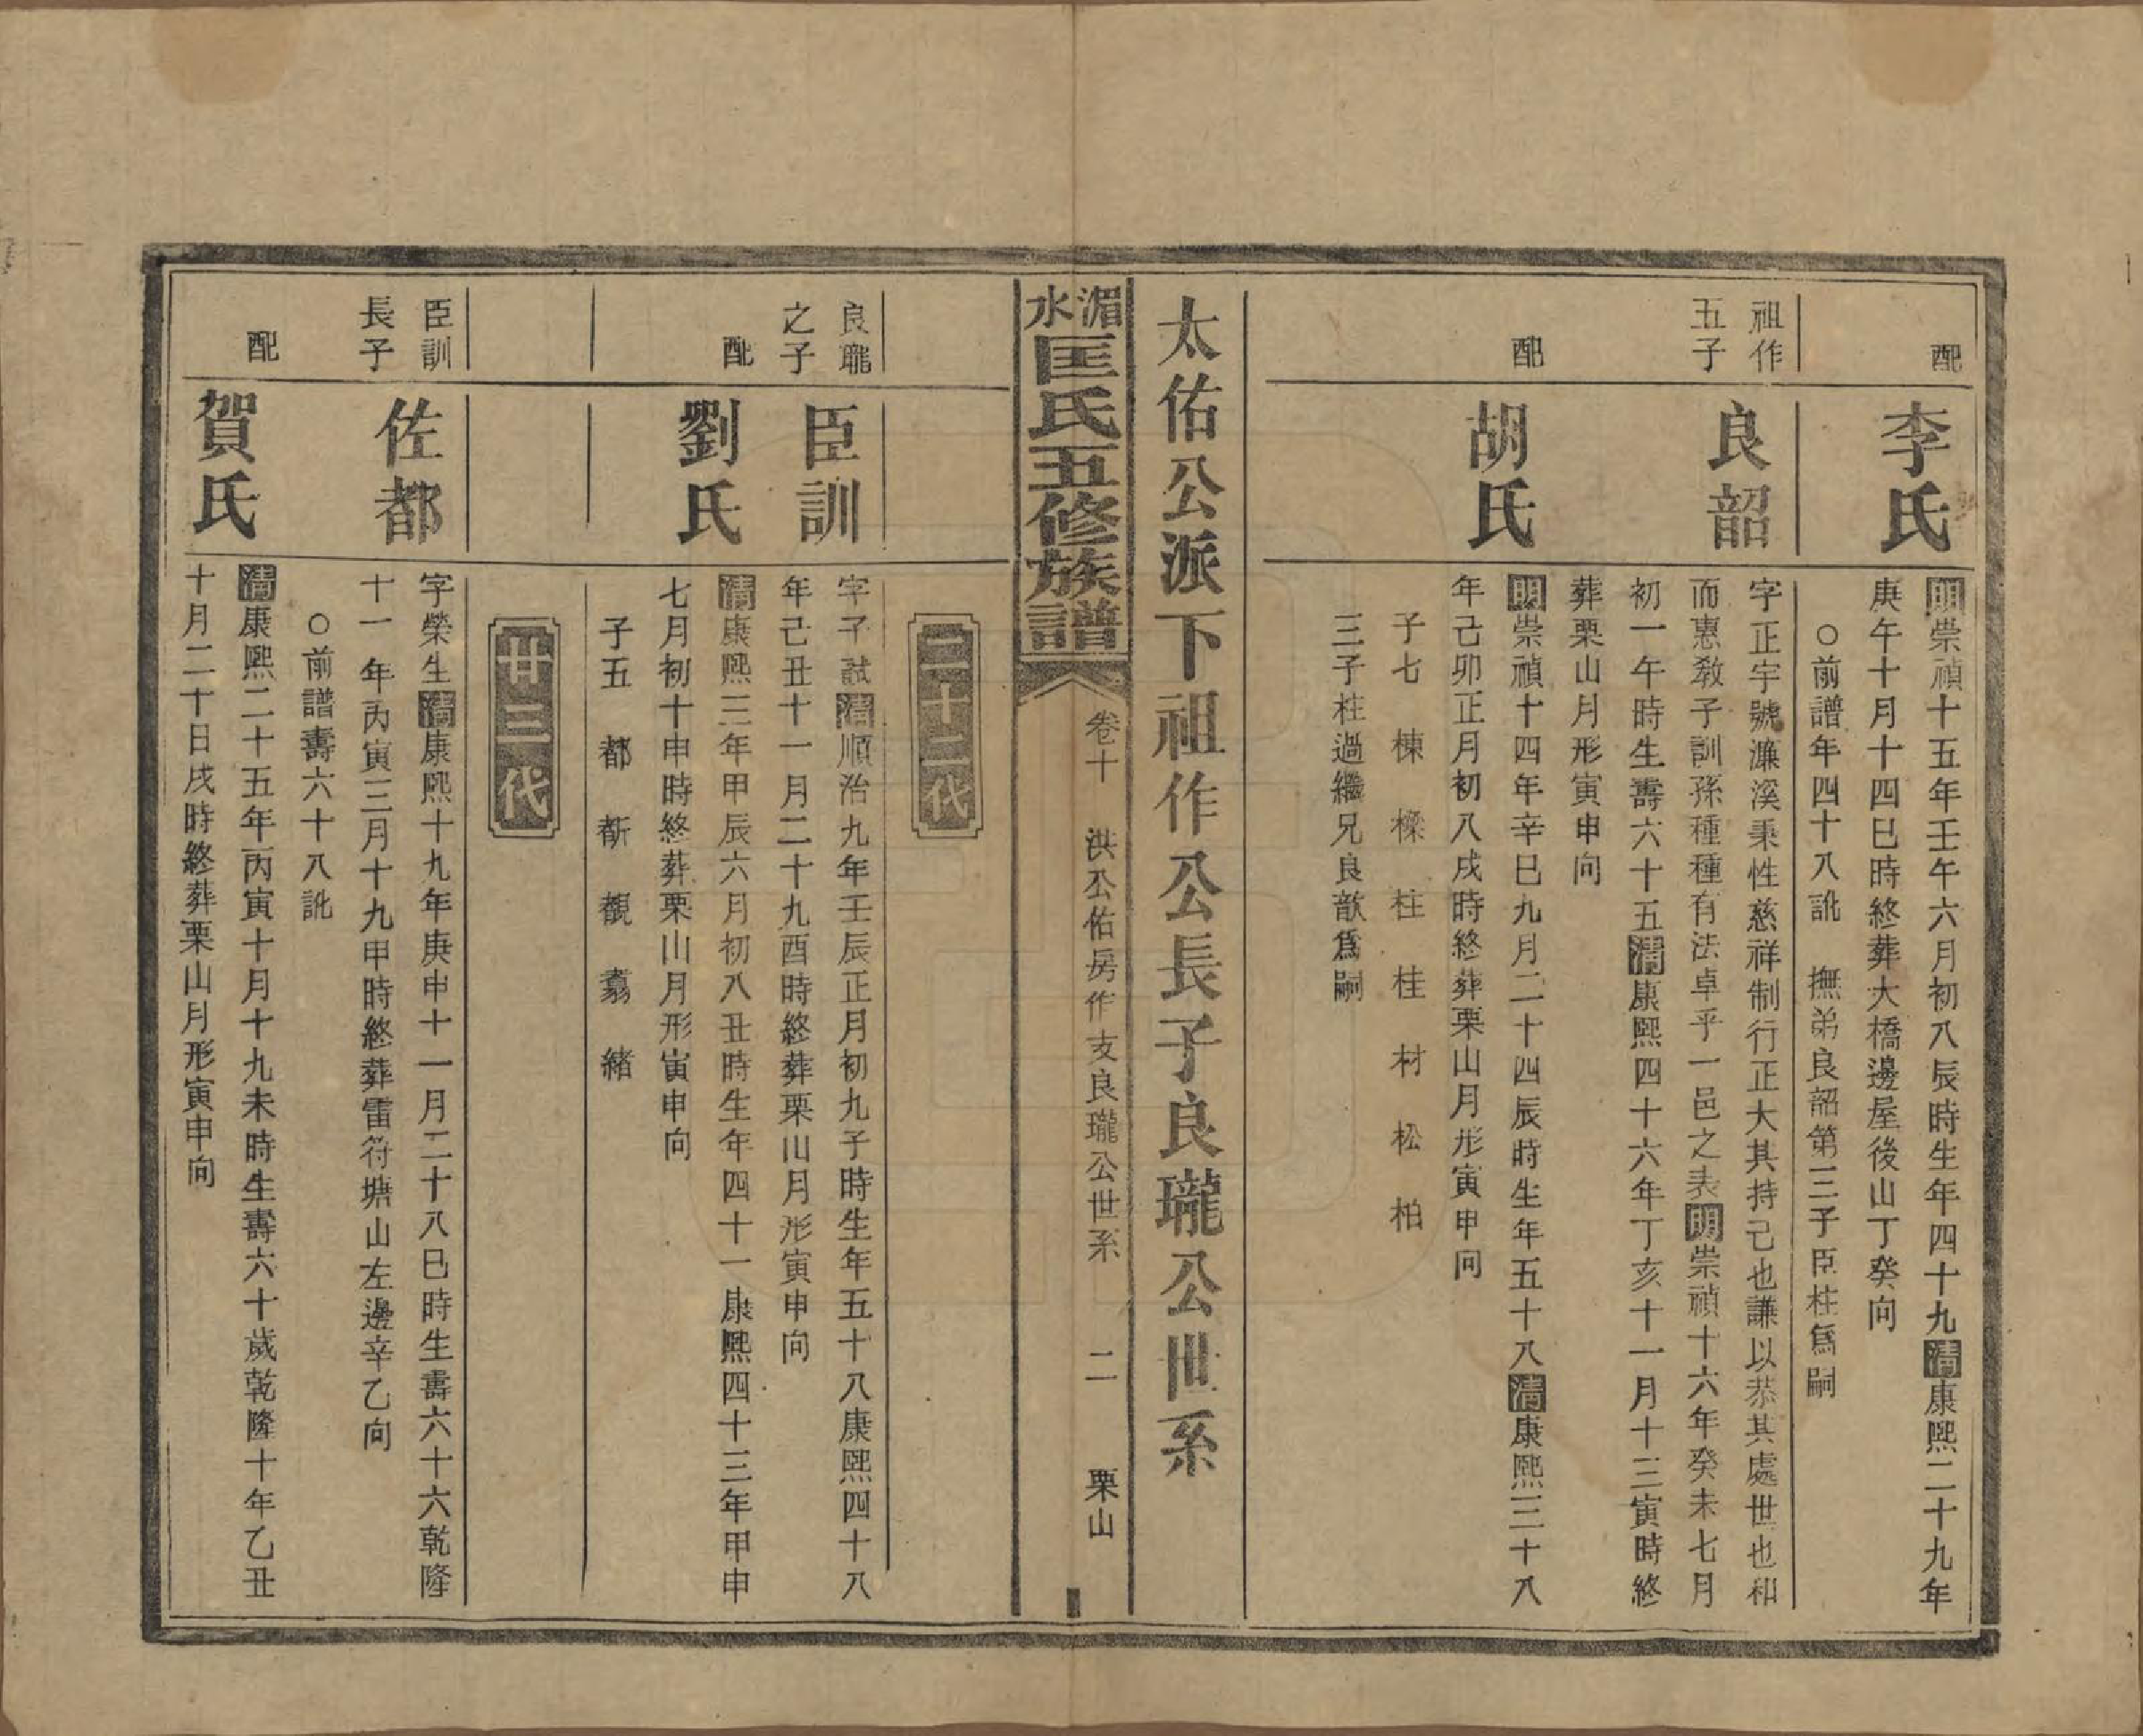 配
李氏
明崇禎十五年壬午六月初八辰時生年四十九清康熙二十九年
庚午十月十四巳時終葬大橋邊屋後山丁癸向
○前譜年四十八訛　撫弟良韶第三子臣柱爲嗣
祖作
五子
良韶
字正宇號濂溪秉性慈祥制行正大其持己也謙以恭其處世也和
而惠教子訓孫種種有法卓乎一邑之表明崇禎十六年癸未七月
初一午時生壽六十五清康熙四十六年丁亥十一月十三寅時終
葬栗山月形寅申向
配
胡氏
明崇禎十四年辛巳九月二十四辰時生年五十八清康熙三十八
年己卯正月初八戌時終葬栗山月形寅申向
子七　棟　樑　柱　桂　材　松　柏
三子柱過繼兄良歆爲嗣
太佑公派下祖作公長子良瓏公世系
湄水匡氏五修族譜
卷十　洪公佑房作支良瓏公世系　二　栗山
二十二代
良瓏
之子
臣訓
字子試清順治九年壬辰正月初九子時生年五十八康熙四十八
年己丑十一月二十九酉時終葬栗山月形寅申向
配
劉氏
清康熙三年甲辰六月初八丑時生年四十一康熙四十三年甲申
七月初十申時終葬栗山月形寅申向
子五　都　斳　覩　翥　緒
廿三代
臣訓
長子
佐都
字榮生清康熙十九年庚申十一月二十八巳時生壽六十六乾隆
十一年丙寅三月十九甲時終葬雷符塘山左邊辛乙向
○前譜壽六十八訛
配
賀氏
清康熙二十五年丙寅十月十九未時生壽六十歲乾隆十年乙丑
十月二十日戌時終葬栗山月形寅申向